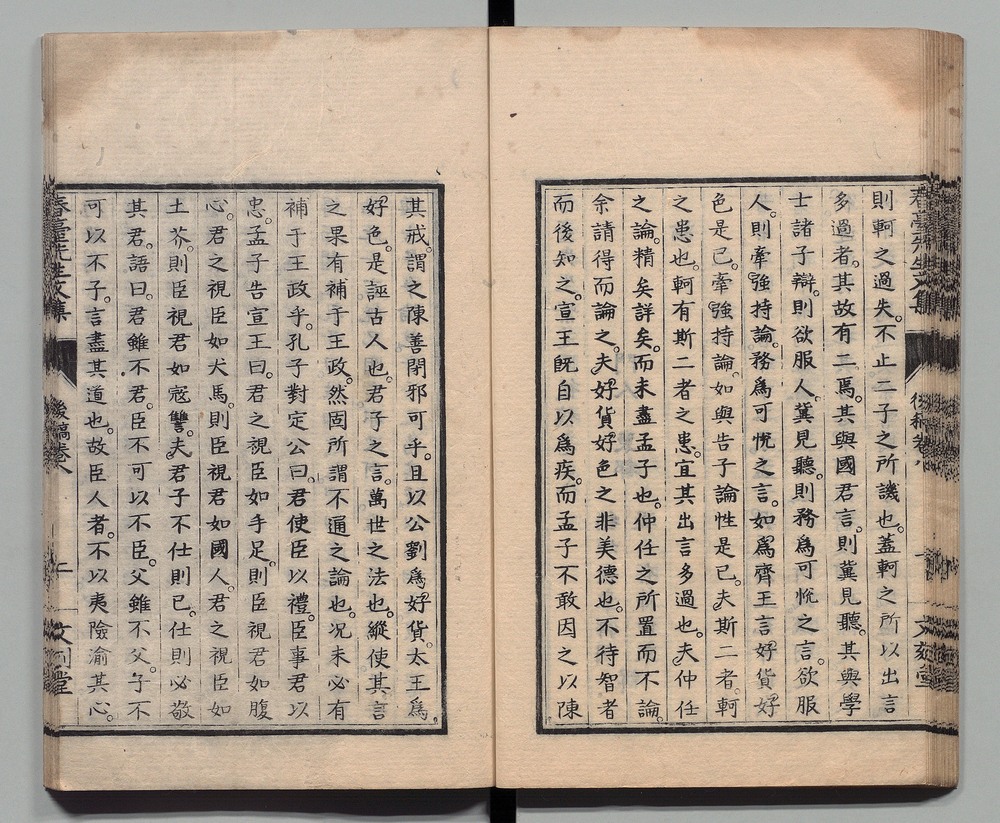 則軻之過失。不止二子之所譏也。蓋軻之所以出言
多過者。其故有二焉。其與國君言。則冀見聽。其與學
士諸子辯。則欲服人。冀見聽。則務爲可悅之言。欲服
人。則牽強持論。務爲可悅之言。如爲齊王言好貨好
色是已。牽強持論。如與告子論性是已。夫斯二者。軻
之患也。軻有斯二者之患。宜其出言多過也。夫仲任
之論。精矣詳矣。而未盡孟子也。仲任之所置而不論。
余請得而論之。夫好貨好色之非美德也。不待智者
而後知之。宣王既自以爲疾。而孟子不敢因之以陳
其戒。謂之陳善閉邪可乎。且以公劉爲好貨。太王爲
好色。是誣古人也。君子之言。萬世之法也。縱使其言
之果有補于王政。然固所謂不通之論也。况未必有
補于王政乎。孔子對定公曰。君使臣以禮。臣事君以
忠。孟子告宣王曰。君之視臣如手足。則臣視君如腹
心。君之視臣如犬馬。則臣視君如國人。君之視臣如
土芥。則臣視君如寇讐。夫君子不仕則已。仕則必敬
其君。語曰。君雖不君。臣不可以不臣。父雖不父。子不
可以不子。言盡其道也。故臣人者。不以夷險渝其心。
春臺先生文集
後稿卷八
文刻堂